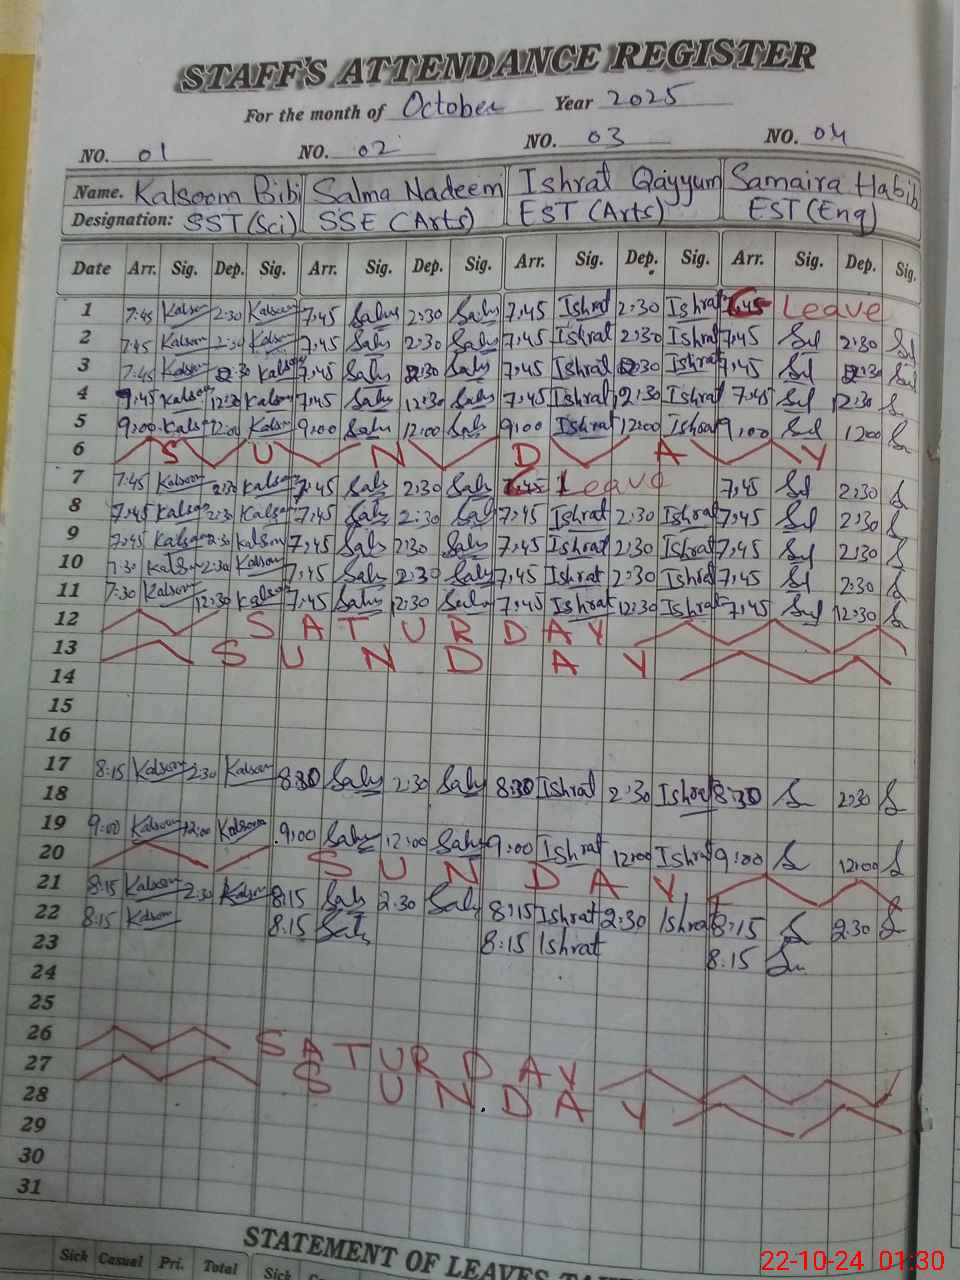 STAFF'S ATTENDANCE REGISTER
For the month of October Year 2025
NO. 01 NO. 02 NO. 03 NO. 04
Name. Kalsoom Bibi Salma Nadeem Ishrat Qayyum Samaira Habib
Designation: SST(Sci) SSE (Arts) EST (Arts) EST (Eng)
Date Arr. Sig. Dep. Sig. Arr. Sig. Dep. Sig. Arr. Sig. Dep. Sig. Arr. Sig. Dep. Sig.
1 7:45 Kalsoom 2:30 Kalsoom 7,45 2:30 7,45 Ishrat 2:30 Ishrat 7,45 Leave
2 7:45 Kalsoom 2:30 Kalsoom 7,45 2:30 7,45 Ishrat 2:30 Ishrat 7,45 2:30
3 7:45 Kalsoom 2:30 Kalsoom 7,45 2:30 7,45 Ishrat 2:30 Ishrat 7,45 2:30
4 7,45 Kalsoom 12:30 Kalsoom 7,45 12:30 7,45 Ishrat 12:30 Ishrat 7,45 12:30
5 9:00 Kalsoom 12:00 Kalsoom 9:00 12:00 9:00 Ishrat 12:00 Ishrat 9,00 12:00
6 SUNDAY
7 7:45 Kalsoom 2:30 Kalsoom 7,45 2:30 7,45 Leave 7,45 2:30
8 7,45 Kalsoom 2:30 Kalsoom 7,45 2:30 7,45 Ishrat 2:30 Ishrat 7,45 2:30
9 7,45 Kalsoom 2:30 Kalsoom 7,45 2:30 7,45 Ishrat 2:30 Ishrat 7,45 2:30
10 7:30 Kalsoom 2:30 Kalsoom 7,45 2:30 7,45 Ishrat 2:30 Ishrat 7,45 2:30
11 7:30 Kalsoom 12:30 Kalsoom 7,45 12:30 7,45 Ishrat 12:30 Ishrat 7,45 12:30
12 SATURDAY
13 SUNDAY
14
15
16
17 8:15 Kalsoom 2:30 Kalsoom 8:30 2:30 8:30 Ishrat 2:30 Ishrat 8:30 2:30
18
19 9:00 Kalsoom 12:00 Kalsoom 9:00 12:00 9:00 Ishrat 12:00 Ishrat 9:00 12:00
20 SUNDAY
21 8:15 Kalsoom 2:30 Kalsoom 8:15 2:30 8:15 Ishrat 2:30 Ishrat 8:15 2:30
22 8:15 Kalsoom 8:15 8:15 Ishrat 8:15
23
24
25
26 SATURDAY
27 SUNDAY
28
29
30
31
STATEMENT OF LEAVES
Sick Casual Pri. Total Sick
22-10-24 01:30